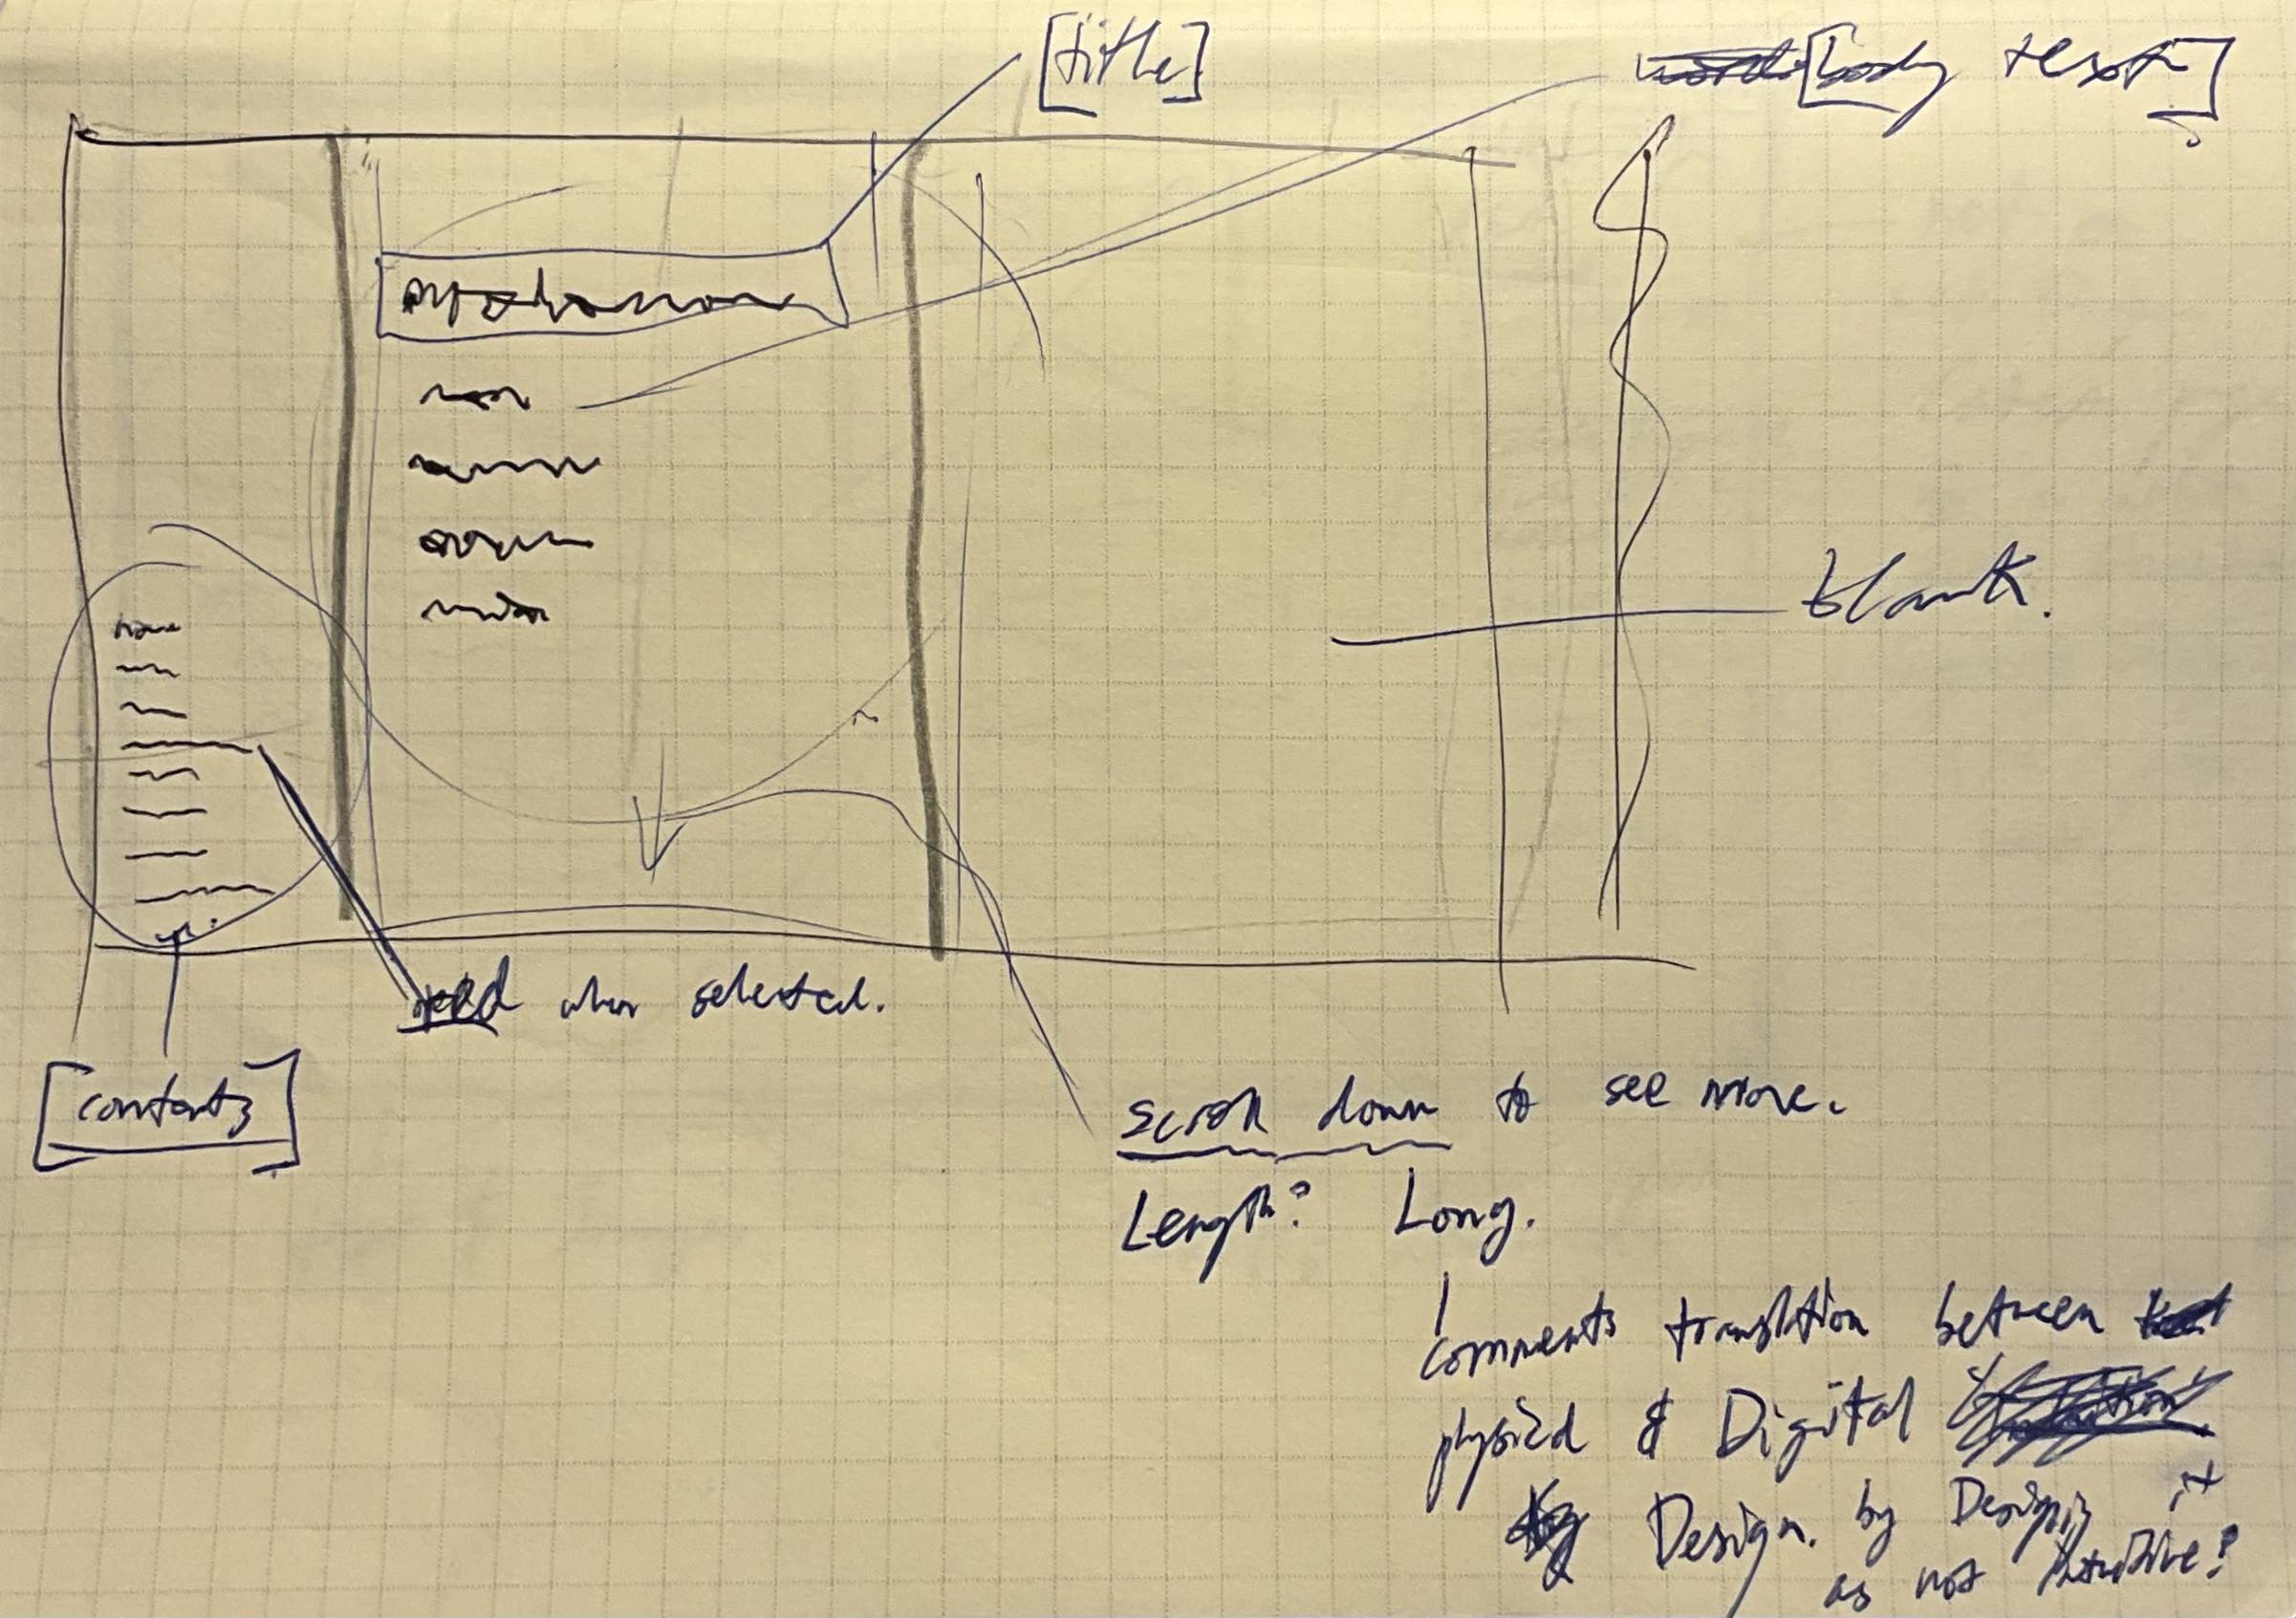 [title]
[body text]
blank.
red when selected.
[contents]
scroll down to see more.
Length? Long.
comments translation between
physical & Digital
Design. by Desigin it
as not intuitive?